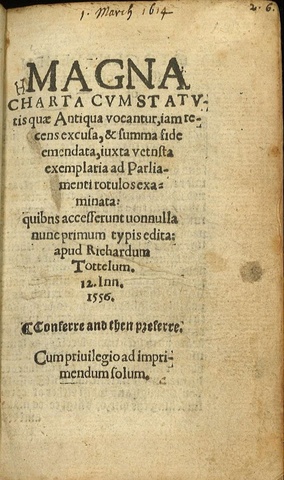 1. March 1614
2. 6.
MAGNA
CHARTA CVM STATV-
tis quæ Antiqua vocantur, iam re-
cens excusa, & summa fide
emendata, iuxta vetusta
exemplaria ad Parlia-
menti rotulos exa-
minata:
quibus accesserunt nonnulla
nunc primum typis edita:
apud Richardum
Tottelum.
12. Iun.
1556.
¶ Conferre and then preferre.
Cum priuilegio ad impri-
mendum solum.